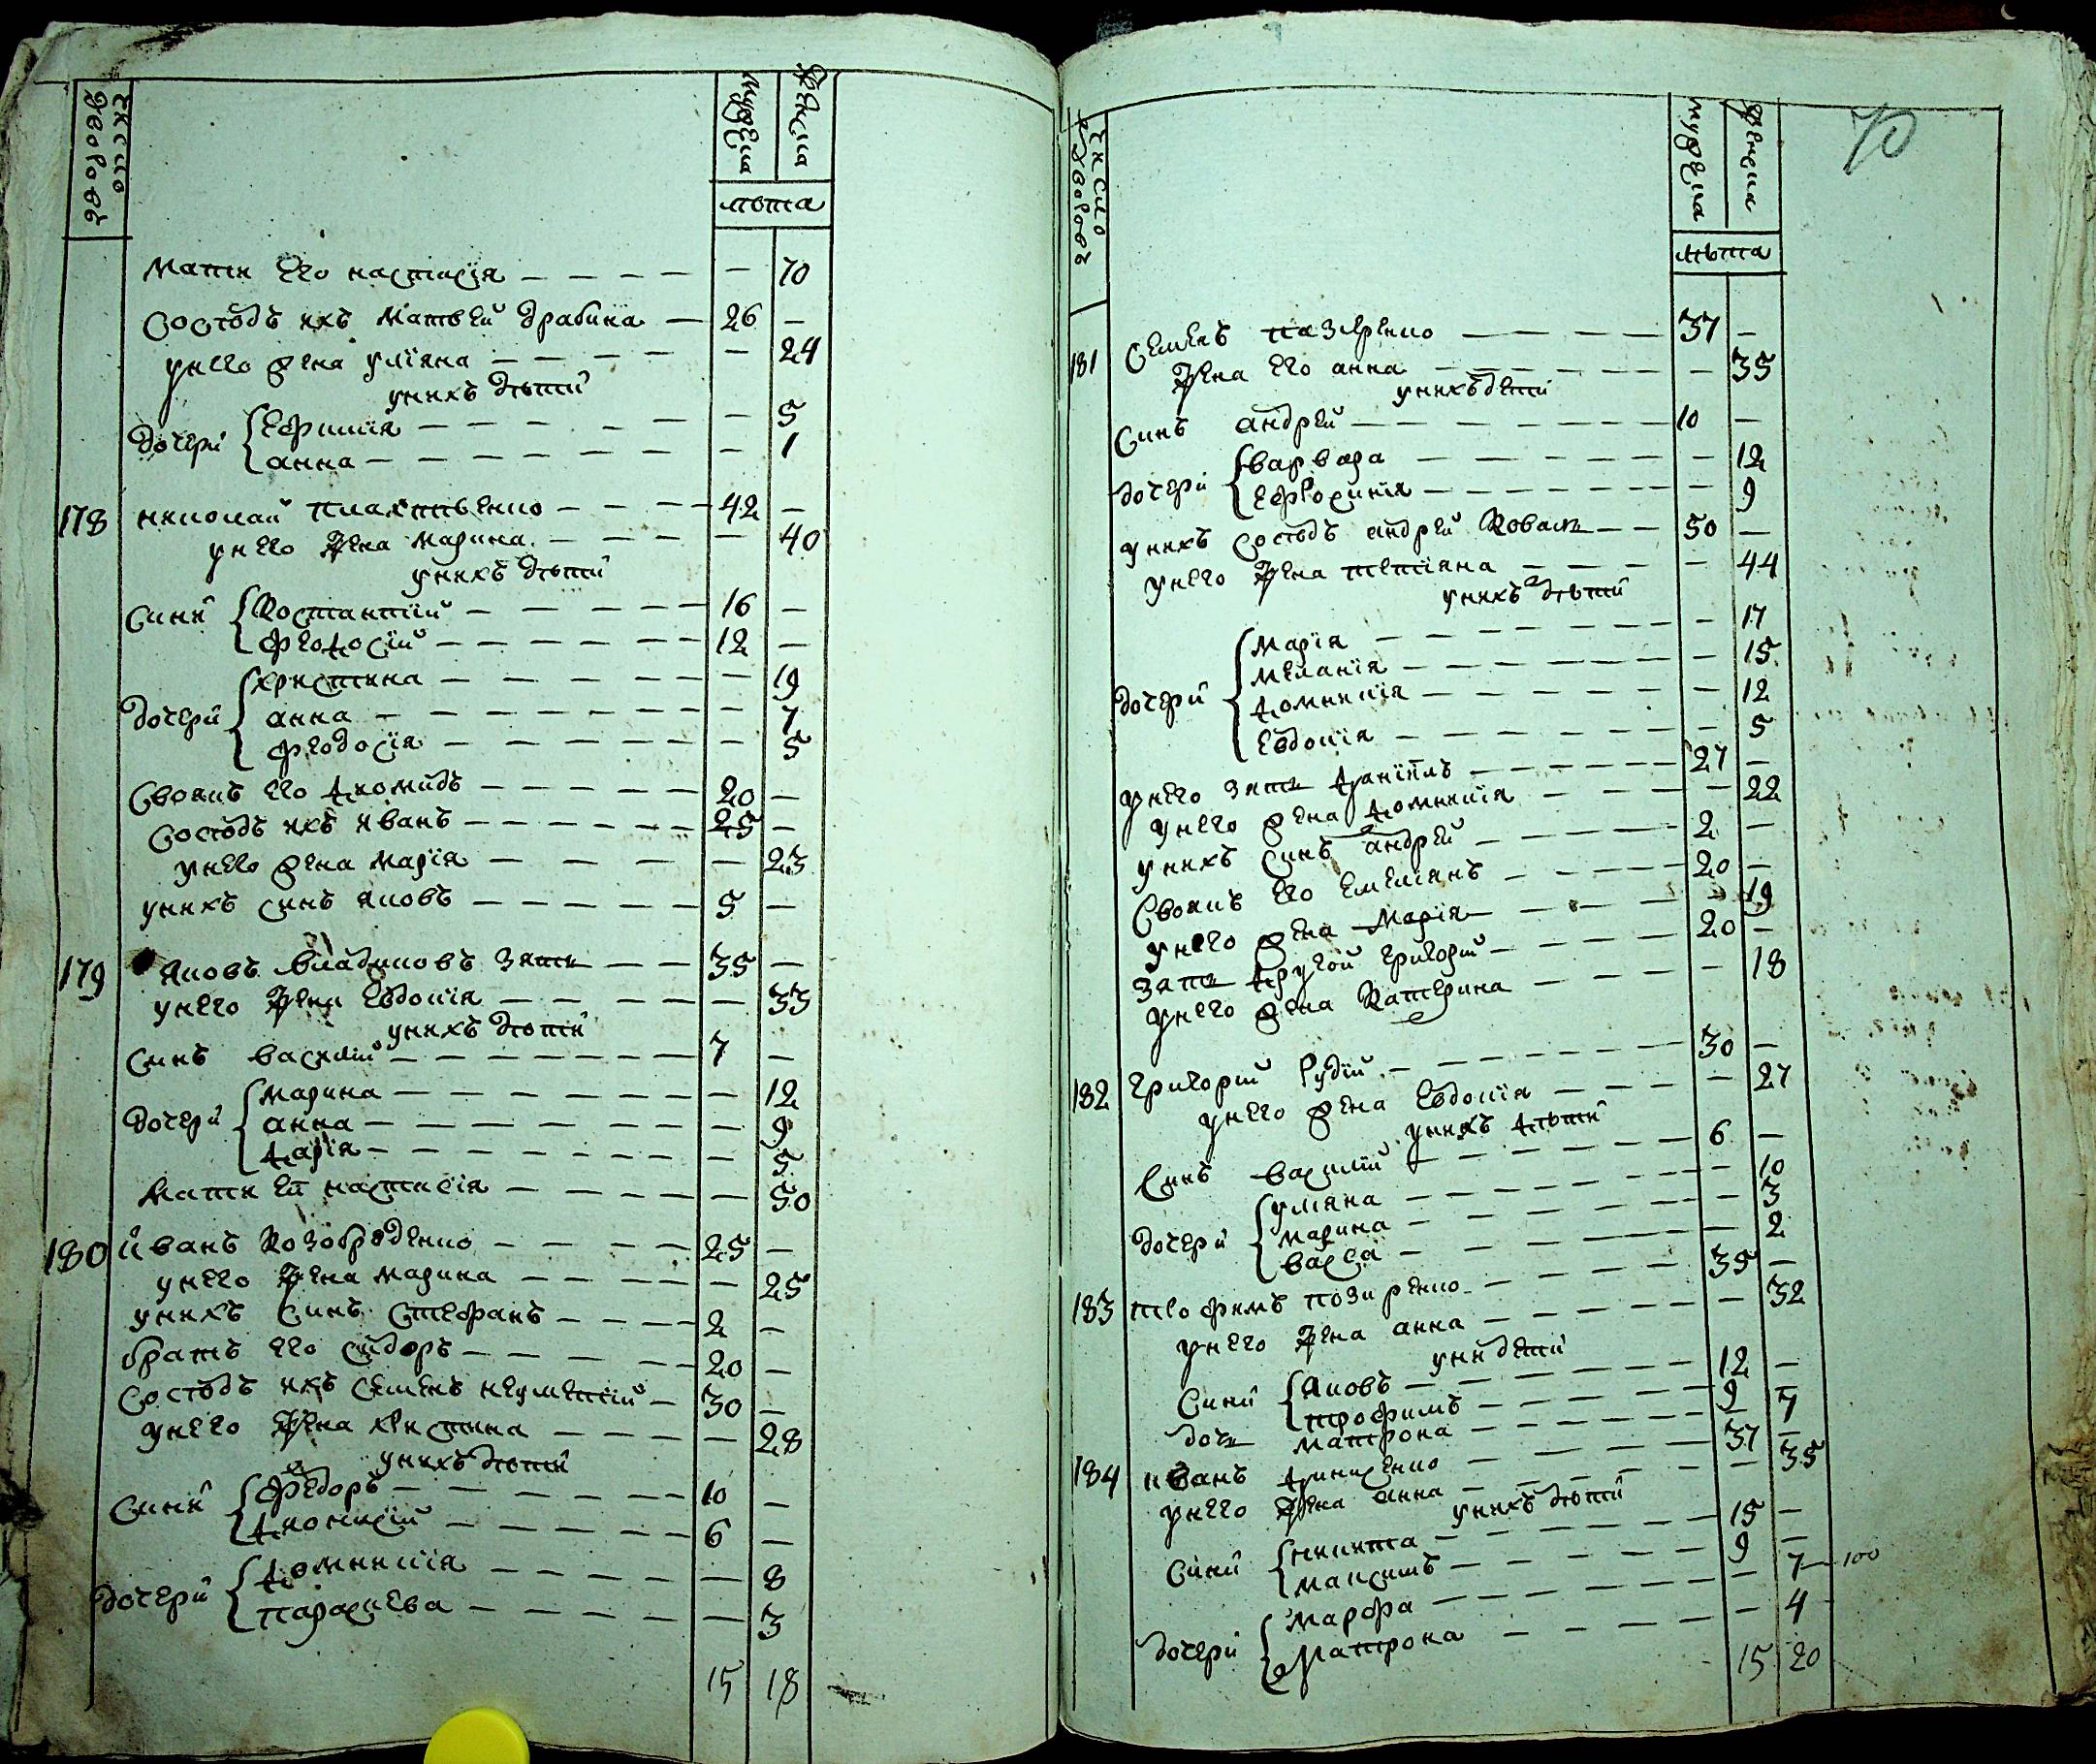 Число дворовъ
мужеска
женска
лѣта
Мати его настасїя — — — — — 70
Сосѣдъ ихъ Матвѣй драбина — 26 —
у него жена улїяна — — — — — 24
у нихъ дѣти
дочери { Ефимия — — — — — 5
анна — — — — — 1
178 николай плахтѣенко — — — 42 —
у него жена марина — — — — 40
у нихъ дѣти
Сини { Костантїй — — — — 16 —
феодосїй — — — — 12 —
дочери { христина — — — — — 19
анна — — — — — 7
феодосїя — — — — — 5
Своякъ его диомидъ — — — — 20 —
Сосѣдъ ихъ иванъ — — — — 25 —
у него жена марїя — — — — — 23
у нихъ синъ яковъ — — — — 5 —
179 яковъ владиковъ зять — — 35 —
у него жена Евдокїя — — — — 33
у нихъ дѣти
Синъ василїй — — — — 7 —
дочери { марина — — — — — 12
анна — — — — — 9
дарїя — — — — — 5
Мати ей настасїя — — — — — 50
180 иванъ Козоброденко — — — 25 —
у него жена марина — — — — — 25
у нихъ синъ Стефанъ — — — 2 —
братъ его сидоръ — — — — 20 —
Сосѣдъ ихъ Семенъ неумѣтїй — 30 —
у него жена христина — — — — 28
у нихъ дѣти
Сини { федоръ — — — — 10 —
дионисїй — — — — 6 —
дочери { домникїя — — — — — 8
параскева — — — — — 3
15 18
70
Число дворовъ
мужеска
женска
лѣта
181 Семенъ пазиренко — — — 37 —
жена его анна — — — — — 35
у нихъ дети
Синъ андрей — — — — 10 —
дочери { варвара — — — — — 12
Ефросиния — — — — — 9
у нихъ сосѣдъ андрей Коваль — — 50 —
у него жена тетїяна — — — — 44
у нихъ дѣти
дочери { Марїя — — — — — 17
Меланїя — — — — — 15
домникїя — — — — — 12
Евдокїя — — — — — 5
у него зять данїилъ — — — — 27 —
у него жена домникїя — — — — 22
у нихъ синъ андрей — — — 2 —
Своякъ его Емелїянъ — — — 20 —
у него жена Марїя — — — — 19
зять другой григорїй — — — 20 —
у него жена Катерина — — — 18
182 григорїй рудїй — — — — 30 —
у него жена Евдокїя — — — — 27
у нихъ дѣти
Синъ василїй — — — — 6 —
дочери { улїяна — — — — — 10
марина — — — — — 3
васса — — — — — 2
183 трофимъ позиренко — — — 35 —
у него жена анна — — — — 32
у ни дети
Сини { яковъ — — — — 12 —
трофимъ — — — — 9 —
дочь матрона — — — — — 7
184 иванъ денисенко — — — 37 —
у него жена анна — — — — 35
у нихъ дѣти
Сини { никита — — — — 15 —
максимъ — — — — 9 —
дочери { марфа — — — — — 7 — 100
Матрона — — — — — 4
15 20